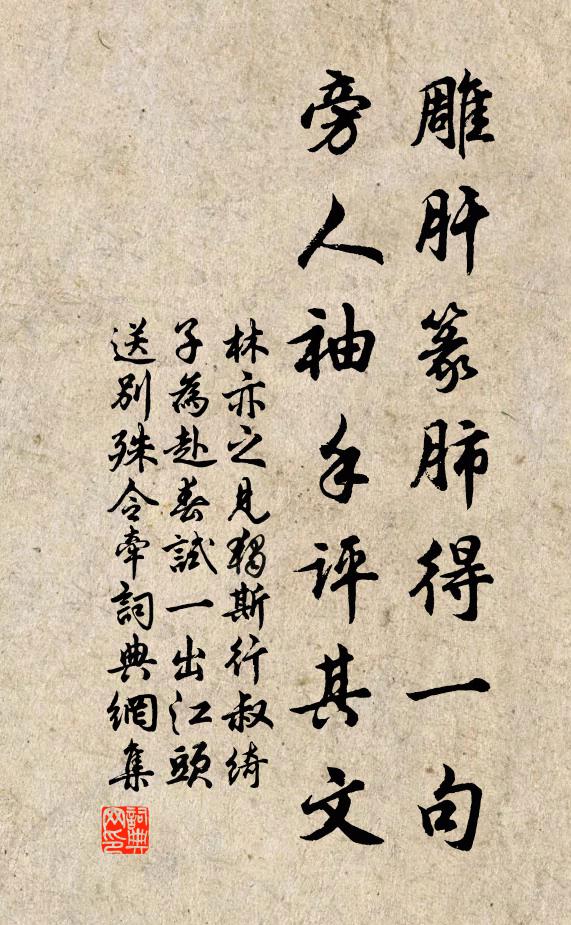 雕肝篆肺得一句
旁人袖手評其文
林亦之見獨斯行叔綺
子為赴春試一出江頭
送別殊令牽詞典網集
詞典
网印